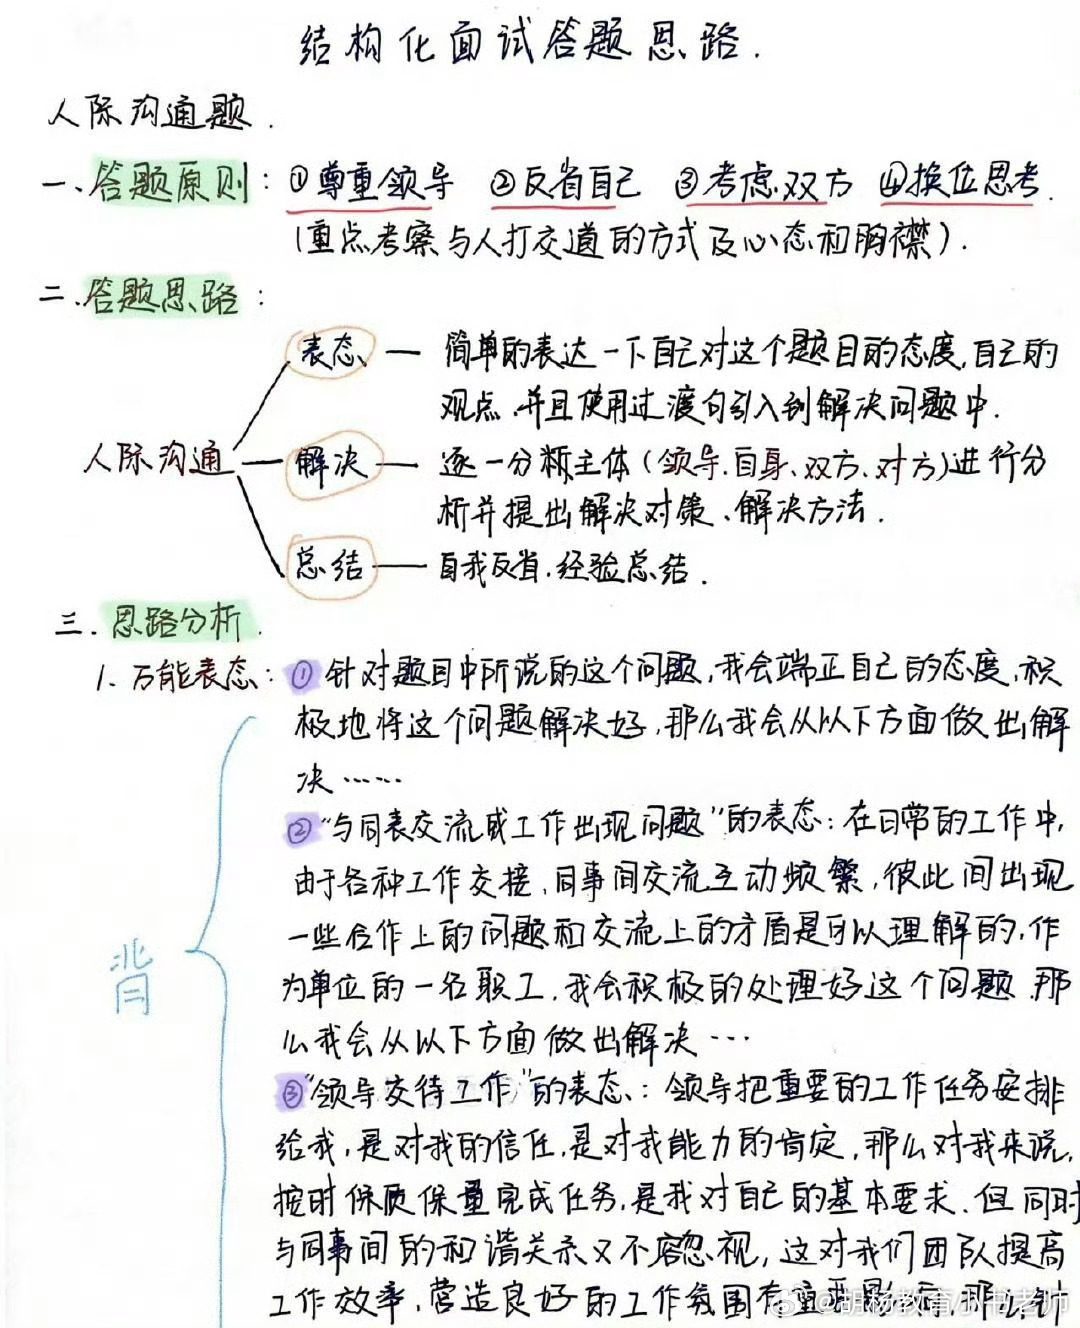 结构化面试答题思路.
人际沟通题.
一、答题原则: ①尊重领导 ②反省自己 ③考虑双方 ④换位思考.
(重点考察与人打交道的方式及心态和胸襟).
二、答题思路:
表态 — 简单的表达一下自己对这个题目的态度,自己的
观点,并且使用过渡句引入到解决问题中.
人际沟通 — 解决 — 逐一分析主体(领导.自身、双方、对方)进行分
析并提出解决对策、解决方法.
总结 — 自我反省.经验总结.
三.思路分析.
1.万能表态: ①针对题目中所说的这个问题,我会端正自己的态度,积
极地将这个问题解决好,那么我会从以下方面做出解
决……
②"与同事交流或工作出现问题"的表态:在日常的工作中,
由于各种工作交接、同事间交流互动频繁,彼此间出现
一些合作上的问题和交流上的矛盾是可以理解的,作
为单位的一名职工,我会积极的处理好这个问题,那
么我会从以下方面做出解决…
背
③"领导交待工作"的表态:领导把重要的工作任务安排
给我,是对我的信任,是对我能力的肯定,那么对我来说,
按时保质保量完成任务,是我对自己的基本要求、但同时
与同事间的和谐关系又不容忽视,这对我们团队提高
工作效率,营造良好的工作氛围有重要影响,那么针
@胡杨教育小书老师